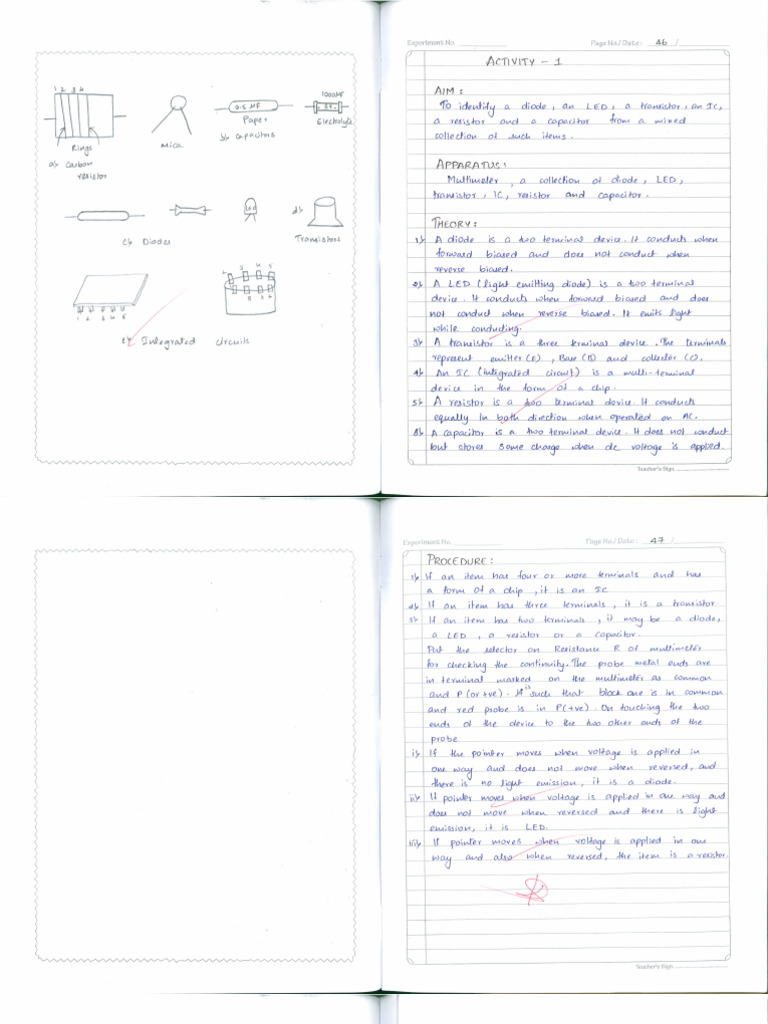 1 2 3 4
Rings
a) Carbon
resistor
Mica
0.5 MF
Paper
b) Capacitors
1000MF
Electrolyte
c) Diodes
LED
d)
Transistors
1 2 3 4 5
e) Integrated circuits
Experiment No.
Page No./ Date: 46 /
ACTIVITY - 1
AIM:
To identify a diode, an LED, a transistor, an IC,
a resistor and a capacitor from a mixed
collection of such items.
APPARATUS:
Multimeter, a collection of diode, LED,
transistor, IC, resistor and capacitor.
THEORY:
1) A diode is a two terminal device. It conducts when
forward biased and does not conduct when
reverse biased.
2) A LED (light emitting diode) is a two terminal
device. It conducts when forward biased and does
not conduct when reverse biased. It emits light
while conducting.
3) A transistor is a three terminal device. The terminals
represent emitter (E), Base (B) and collector (C).
4) An IC (integrated circuit) is a multi-terminal
device in the form of a chip.
5) A resistor is a two terminal device. It conducts
equally in both direction when operated on AC.
6) A capacitor is a two terminal device. It does not conduct
but stores some charge when dc voltage is applied.
Teacher's Sign
Experiment No.
Page No./ Date: 47 /
PROCEDURE:
1) If an item has four or more terminals and has
a form of a chip, it is an IC
2) If an item has three terminals, it is a transistor
3) If an item has two terminals, it may be a diode,
a LED, a resistor or a capacitor.
Put the selector on Resistance R of multimeter
for checking the continuity. The probe metal ends are
in terminal marked on the multimeter as common
and P (or +ve). It is such that block one is in common
and red probe is in P(+ve). On touching the two
ends of the device to the two other ends of the
probe
i) If the pointer moves when voltage is applied in
one way and does not move when reversed, and
there is no light emission, it is a diode.
ii) If pointer moves when voltage is applied in one way and
does not move when reversed and there is light
emission, it is LED.
iii) If pointer moves when voltage is applied in one
way and also when reversed, the item is a resistor.
Teacher's Sign